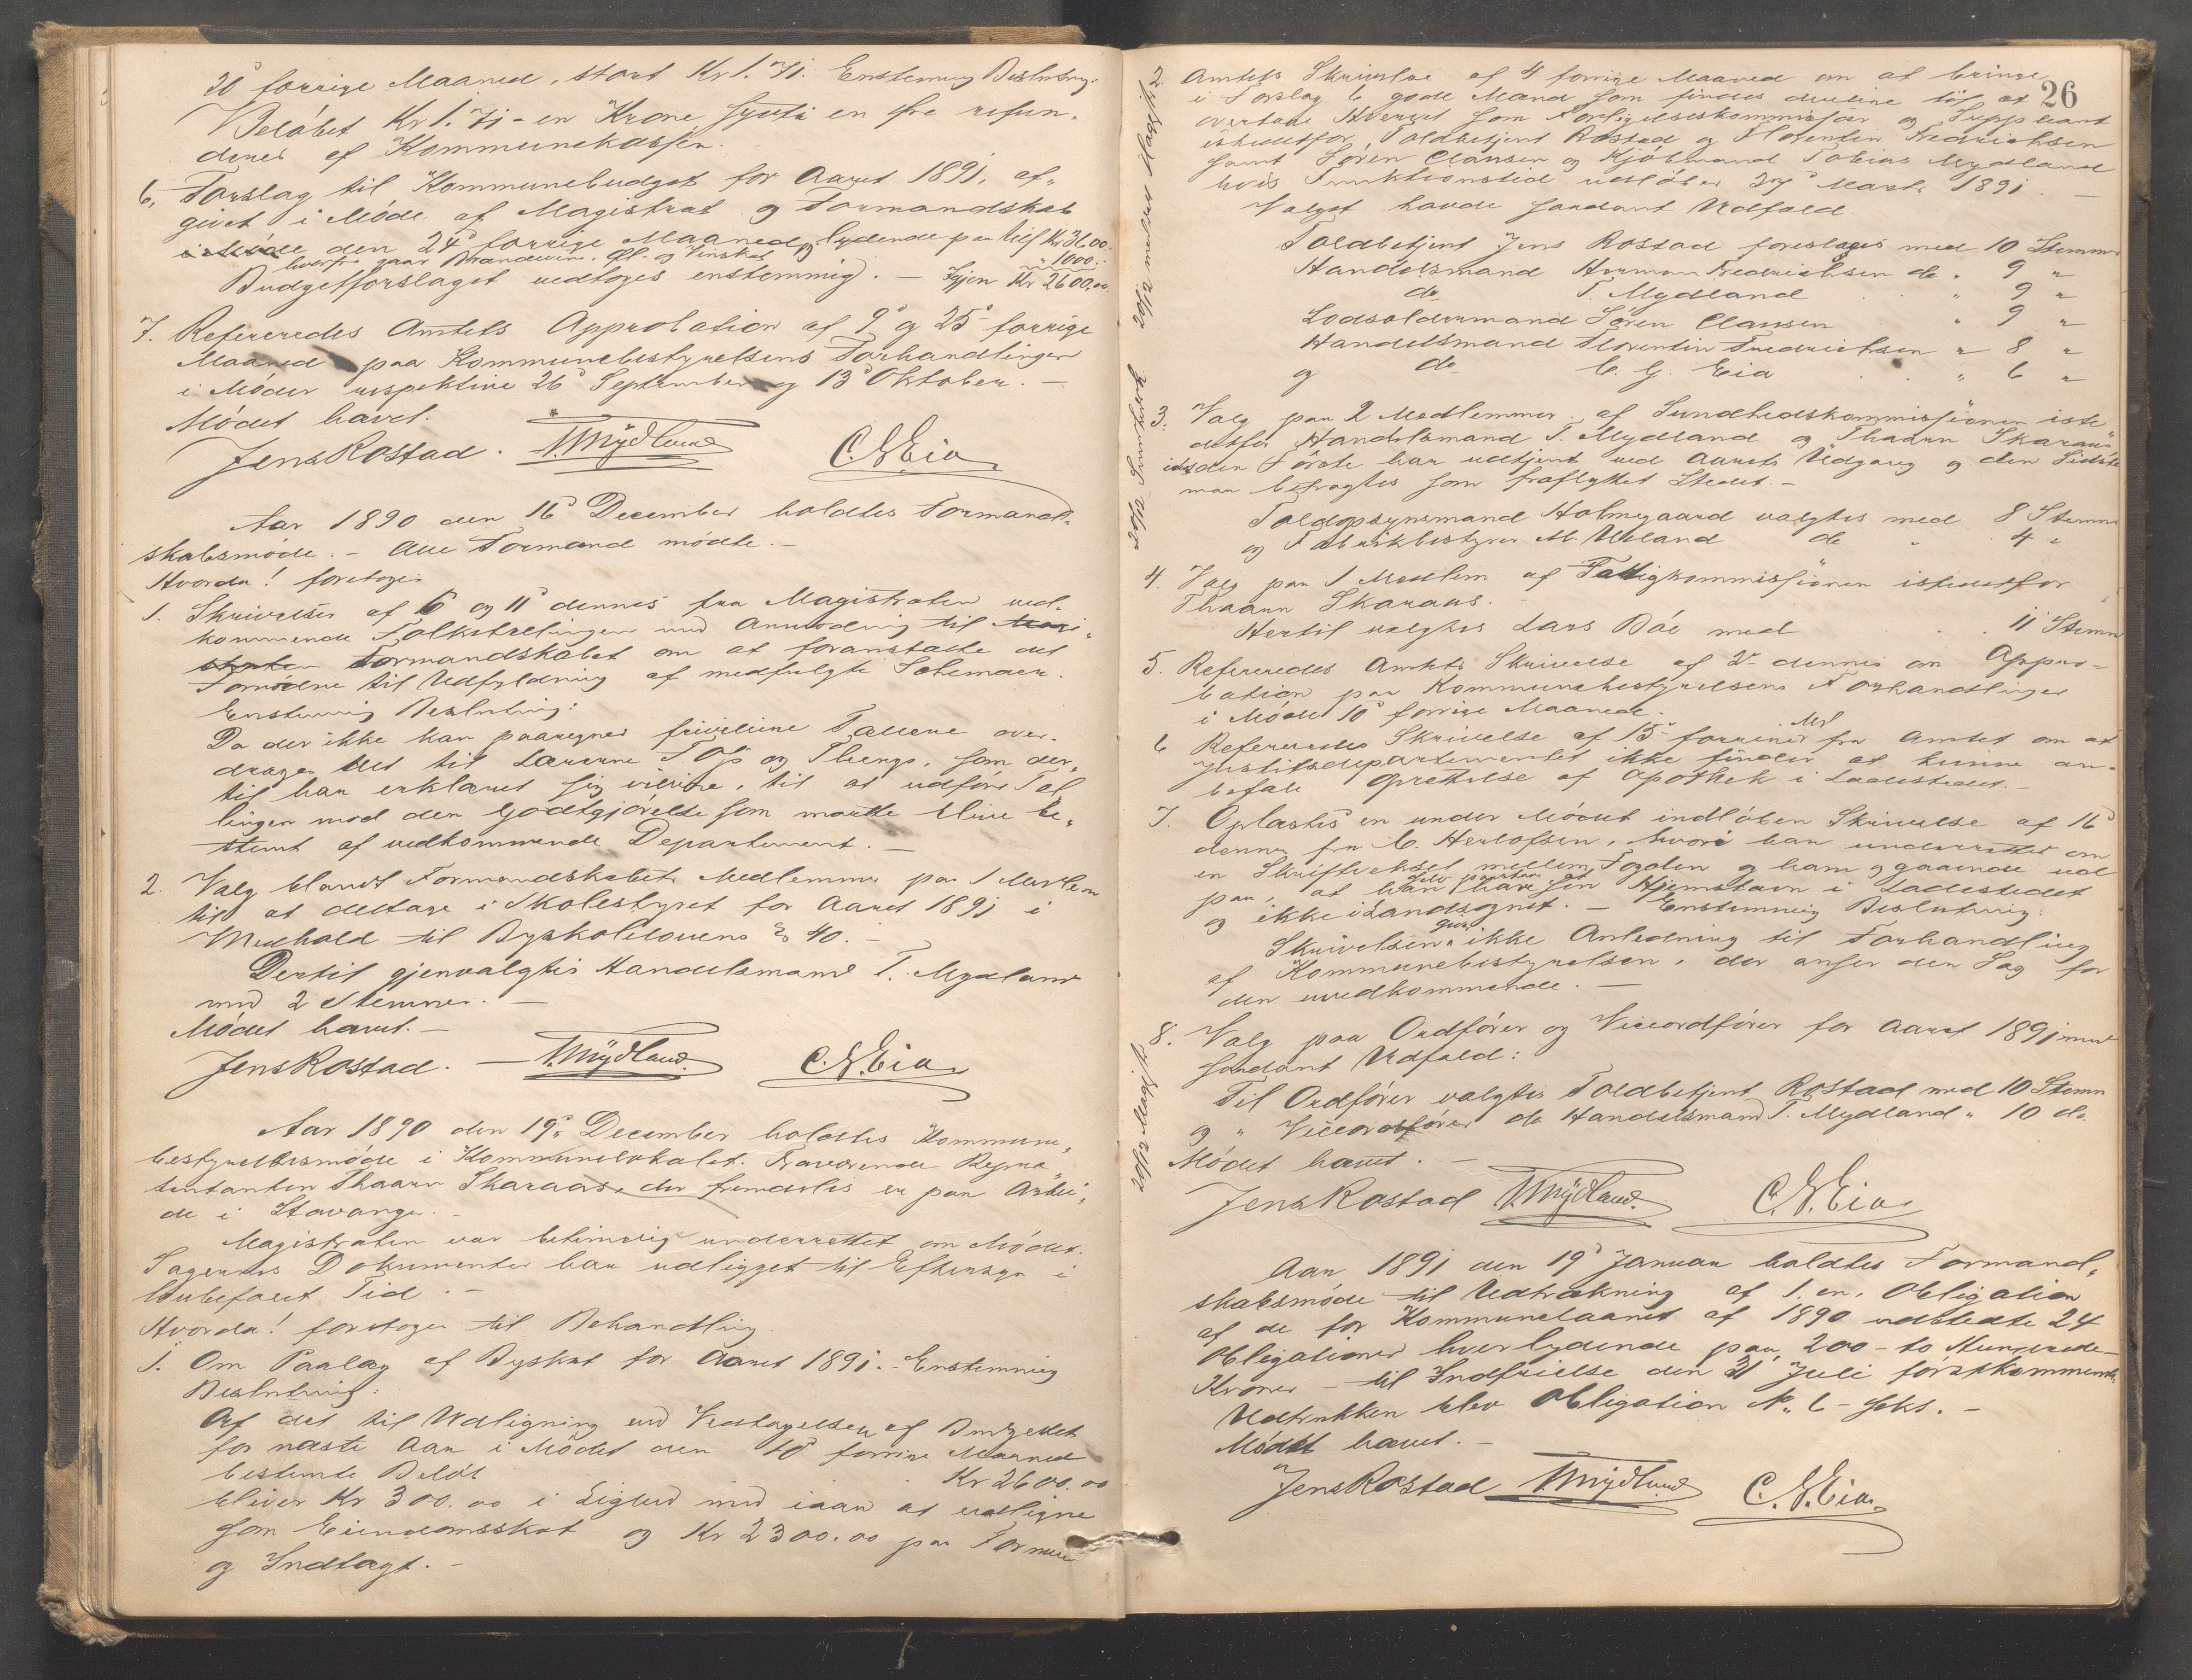 20de forrige Maaned, stort Kr 1.71. Enstemmig Beslutning.
Beløbet Kr 1.71 - en Krone sytti en Øre refun-
deres af Kommunekassen.
6. Forslag til Kommunebudget for Aaret 1891, af-
givet i Møde af Magistrat og Formandskab
den 24de forrige Maaned, lydende paa tils Kr 3600.
hvorfra gaar Brændevin, Øl- og Vinskat og " 1000.
Budgetforslaget vedtoges enstemmig. - Igjen Kr 2600.00
7. Refereredes Amtets Approbation af 9de og 25de forrige
Maaned paa Kommunebestyrelsens Forhandlinger
i Møder respektive 26de September og 13de Oktober. -
Mødet hævet.
Jens Rostad. T. Mydland C. G. Eia
Aar 1890 den 16de December holdtes Formand-
skabsmøde. - Alle Formænd mødte. -
Hvorda! foretoges
1. Skrivelser af 6 og 11te dennes fra Magistraten ved-
kommende Folketællingen med Anmodning til Magi-
straten Formandskabet om at foranstalte det
Fornødne til Udfyldning af medfulgte Schemaer.
Enstemmig Beslutning:
Da der ikke kan paaregnes frivillige Tællere over-
drages det til Lærerne og som der-
til har erklæret sig villige, til at udføre Tæl-
lingen mod den Godtgjørelse som maatte blive be-
stemt af vedkommende Departement. -
2. Valg blandt Formandskabets Medlemmer paa 1 Medlem
til at deltage i Skolestyret for Aaret 1891 i
Medhold til Byskolelovens § 40. -
Dertil gjenvalgtes Handelsmand T. Mydland
med 2 Stemmer. -
Mødet hævet. -
Jens Rostad. - T. Mydland. C. G. Eia
Aar 1890 den 19de December holdtes Kommune-
bestyrelsesmøde i Kommunelokalet. Fraværende Repræ-
sentanten Thaarn Skaraas, der fremdeles er paa Arbei-
de i Stavanger. -
Magistraten var betimelig underrettet om Mødet.
Sagernes Dokumenter har udligget til Eftersyn i
lovbefalet Tid. -
Hvorda! foretoges til Behandling
1. Om Paalæg af Byskat for Aaret 1891. - Enstemmig
Beslutning:
Af det til Udligning ved Vedtagelsen af Budgettet
for næste Aar i Mødet den 10de forrige Maaned
bestemte Beløb Kr 2600.00
bliver Kr 300.00 i Lighed med iaar at udligne
som Eiendomsskat og Kr 2300.00 paa Formue
og Indtægt. -
26
2. Amtets Skrivelse af 4 forrige Maaned om at bringe
i Forslag 6 gode Mænd som findes villige til at
overtage Hvervet som Forligelseskommissær og Suppleant
istedetfor Toldbetjent Rostad og Florentin Fredrichsen
samt Søren Clausen og Kjøbmand Tobias Mydland
hvis Funktionstid udløber 27de Marts 1891. -
Valget havde saadant Udfald
Toldbetjent Jens Rostad foresloges med 10 Stemmer
Handelsmand Herman Fredrichsen do " 9 "
do T. Mydland " 9 "
Lodsoldermand Søren Clausen " 9 "
Handelsmand Florentin Fredrichsen " 8 "
og do C. G. Eia " 6 "
3. Valg paa 2 Medlemmer af Sundhedskommissionen iste-
detfor Handelsmand T. Mydland og Thaarn Skaraas
idet den Første har udtjent ved Aarets Udgang og den Sidste
man betragtes som fraflyttet Stedet. -
Toldopsynsmand Holmegaard valgtes med 8 Stemmer
og Fabrikbestyrer M. Ueland do " 4 "
4. Valg paa 1 Medlem af Fattigkommissionen istedetfor
Thaarn Skaraas.
Hertil valgtes Lars Bøe med 11 Stemm
5. Refereredes Amtets Skrivelse af 2den dennes om Appro-
bation paa Kommunebestyrelsens Forhandlinger
i Mødet 10de forrige Maaned.
6 Refereredes Skrivelse af 15de forrige Md fra Amtet om at
Justitsdepartementet ikke finder at kunne an-
befale Oprettelse af Apothek i Ladestedet. -
7. Oplæstes en under Mødet indløben Skrivelse af 16de
dennes fra C. Herlofsen, hvori han underretter om
en Skriftveksel mellem Fogden og ham gaaende ud
paa, at han selv paastaar at have sin Hjemstavn i Ladestedet
og ikke i Landsognet. - Enstemmig Beslutning:
Skrivelsen giver ikke Anledning til Forhandling
af Kommunebestyrelsen, der anser den Sag for
den uvedkommende. -
8. Valg paa Ordfører og Viceordfører for Aaret 1891 med
saadant Udfald:
Til Ordfører valgtes Toldbetjent Rostad med 10 Stemm
og " Viceordfører do Handelsmand T. Mydland " 10 do.
Mødet hævet. -
Jens Rostad T. Mydland. C. G. Eia
Aar 1891 den 19de Januar holdtes Formand-
skabsmøde til Udtrækning af 1. en, Obligation
af de for Kommunelaanet af 1890 udstedte 24
Obligationer hver lydende paa 200 - to Hundrede
Kroner - til Indfrielse den 31 Juli førstkommende
Udtrukken blev Obligation No. 6 - seks. -
Mødet hævet. -
Jens Rostad T. Mydland C. G. Eia